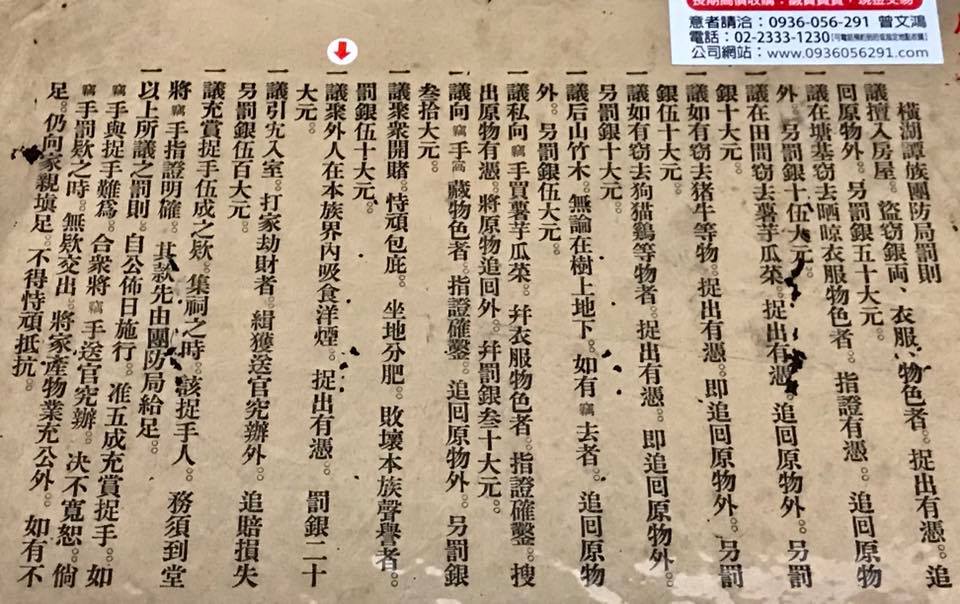 長期高價收購‧誠實買賣‧現金交易
意者請洽：0936-056-291 曾文鴻
電話：02-2333-1230
公司網站：www.0936056291.com
橫湖譚族團防局罰則
一議擅入房屋。盜窃銀両、衣服、物色者。捉出有憑。追
回原物外。另罰銀五十大元。
一議在塘基窃去晒晾衣服物色者。指證有憑。追回原物
外。另罰銀十伍大元。
一議在田間窃去薯芋瓜菜。捉出有憑。追回原物外。另罰
銀十大元。
一議如有窃去猪牛等物。捉出有憑。即追回原物外。另罰
銀伍十大元。
一議如有窃去狗猫鷄等物者。捉出有憑。即追回原物外。
另罰銀十大元。
一議后山竹木。無論在樹上地下。如有竊去者。追回原物
外。另罰銀伍大元。
一議私向竊手買薯芋瓜菜。幷衣服物色者。指證確鑿。搜
出原物有憑。將原物追回外。幷罰銀叁十大元。
一議向竊手窩藏物色者。指證確鑿。追回原物外。另罰銀
叁拾大元。
一議聚衆開賭。恃頑包庇。坐地分肥。敗壞本族聲譽者。
罰銀伍十大元。
一議聚外人在本族界內吸食洋煙。捉出有憑。罰銀二十
大元。
一議引宄入室。打家劫財者。緝獲送官究辦外。追賠損失
另罰銀伍百大元。
一議充賞捉手伍成之欵。集祠之時。該捉手人。務須到堂
將竊手指證明確。其款先由團防局給足。
一以上所議之罰則。自公佈日施行。准五成充賞捉手。如
竊手與捉手難爲。合衆將竊手送官究辦。决不寬恕。倘
竊手罰欵之時。無欵交出。將家產物業充公外。如有不
足。仍向家親塡足。不得恃頑抵抗。